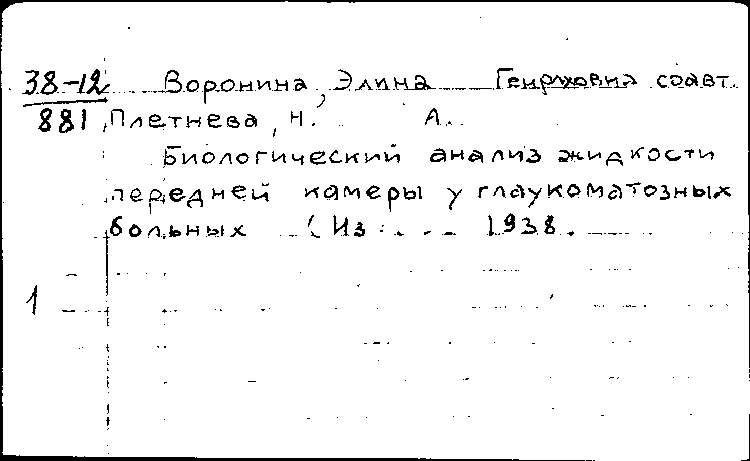 38-12 Воронина, Элина Генриховна соавт.
881 Плетнева, Н. А.
Биологический анализ жидкости
передней камеры у глаукоматозных
больных (Из . . . . 1938.
1